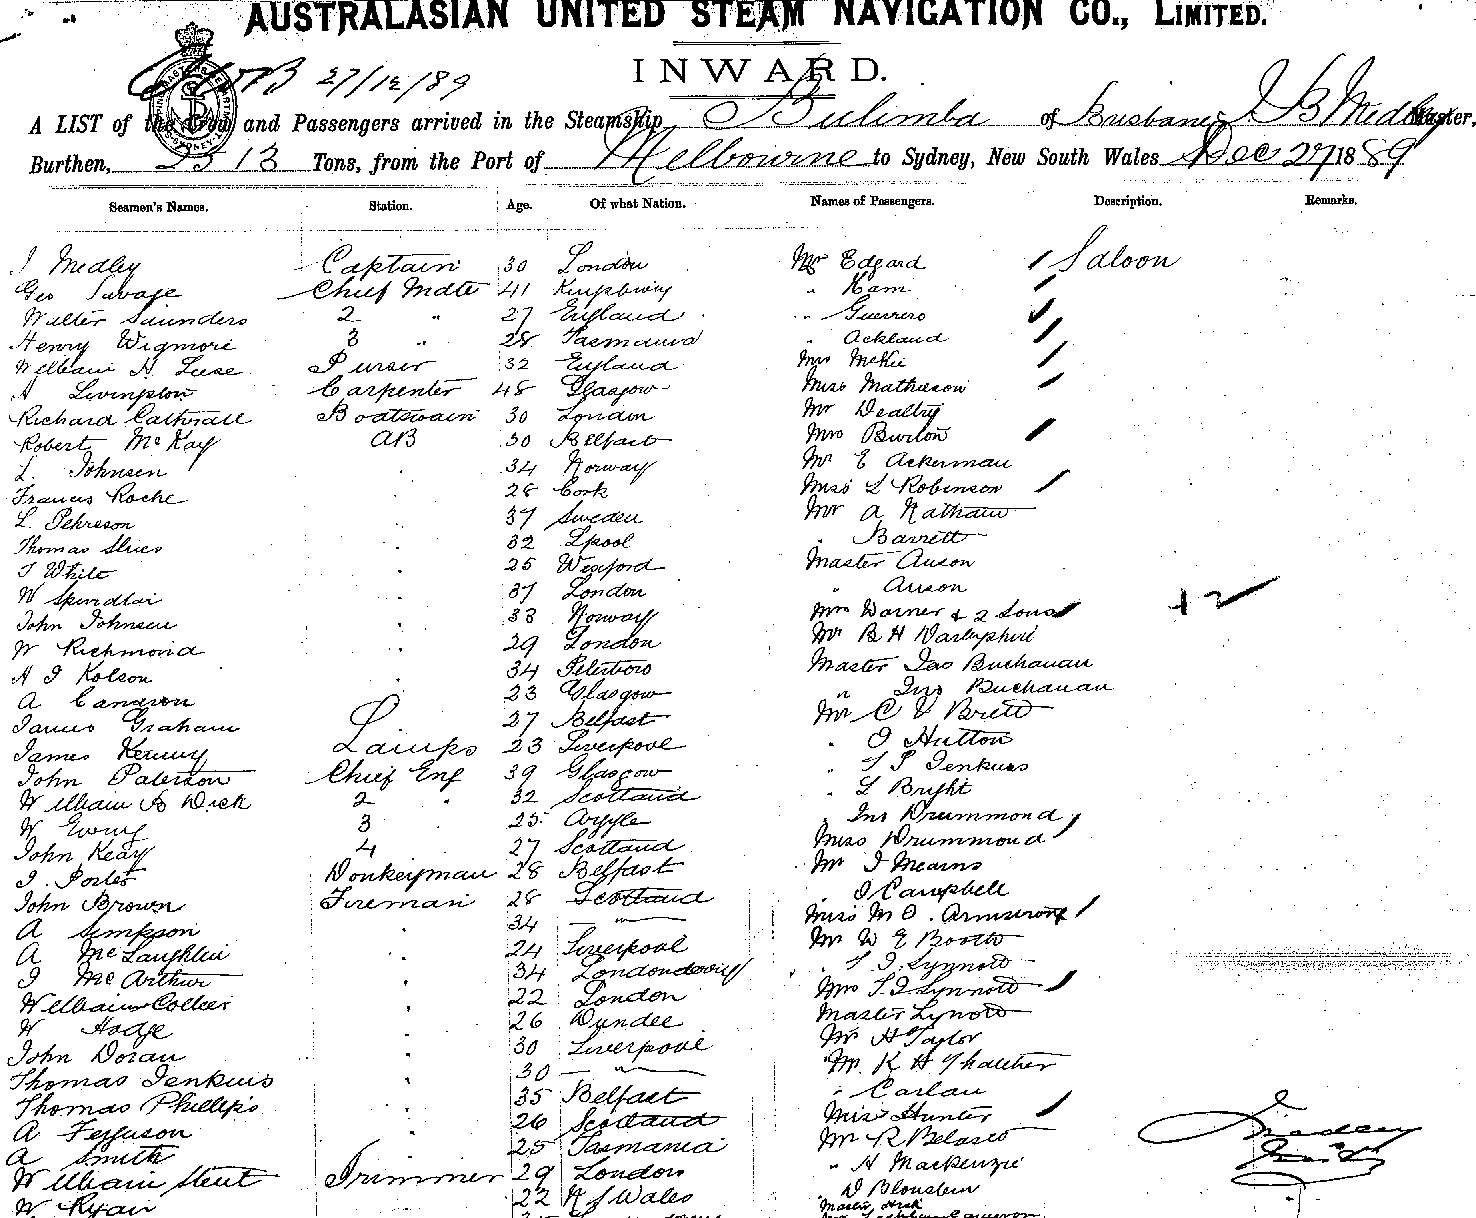 AUSTRALASIAN UNITED STEAM NAVIGATION CO., LIMITED.
27/12/89
INWARD.
A LIST of the Crew and Passengers arrived in the Steamship Bulimba of Brisbane, J B Medley Master,
Burthen, 2513 Tons, from the Port of Melbourne to Sydney, New South Wales Dec 27 1889
Seamen's Names. Station. Age. Of what Nation. Names of Passengers. Description. Remarks.
J Medley Captain 30 London Mr Edgard Saloon
Geo Savage Chief Mate 41 " Ham
Walter Saunders 2 " 27 England " Guerrero
Henry Wigmore 3 " 28 Tasmania " Ackland
William H Purser 32 England Mrs McKie
A Livingston Carpenter 48 Glasgow Miss Mathieson
Richard Boatswain 30 London Mr Dealtry
Robert McKay AB 30 Belfast Mrs Burton
L. Johnsen 34 Norway Mr E Ackerman
Francis Roche 28 Cork Miss L Robinson
L. Pehrson 37 Sweden Mr A Nathan
Thomas 32 Lpool " Barrett
T White 25 Wexford Master Anson
W 37 London " Anson
John Johnsen 33 Norway Mrs Warner & 2 Sons +2
W Richmond 29 London Mr B H
A J Kolson 34 Peterboro Master Jas Buchanan
A Cameron 23 Glasgow " Jno Buchanan
James Graham 27 Belfast Mr C V Brett
James Kenny Lamps 23 Liverpool " J Hutton
John Paterson Chief Eng 39 Glasgow " T P Jenkins
William B Dick 2 " 32 Scotland " L Bright
W Ewing 3 25 Argyle " Jno Drummond
John Keay 4 27 Scotland Miss Drummond
J. Porter Donkeyman 28 Belfast Mr J Mearns
John Brown Fireman 28 Scotland " J Campbell
A Simpson 34 — " — Miss M O. Armstrong
A McLaughlin 24 Liverpool Mr W E Booth
J McArthur 34 Londonderry " T J Lynnott
William Collier 22 London Mrs T J Lynnott
W Hodge 26 Dundee Master Lynott
John Doran 30 Liverpool Mr H Taylor
Thomas Jenkins 30 — " — Mr K H Thatcher
Thomas Phillips 35 Belfast " Carlau
A Ferguson 26 Scotland Miss Hunter
A Smith 25 Tasmania Mr R Belasco
William Trimmer 29 London " H Mackenzie
W Ryan 22 N S Wales D Blonstein
J Medley
Master